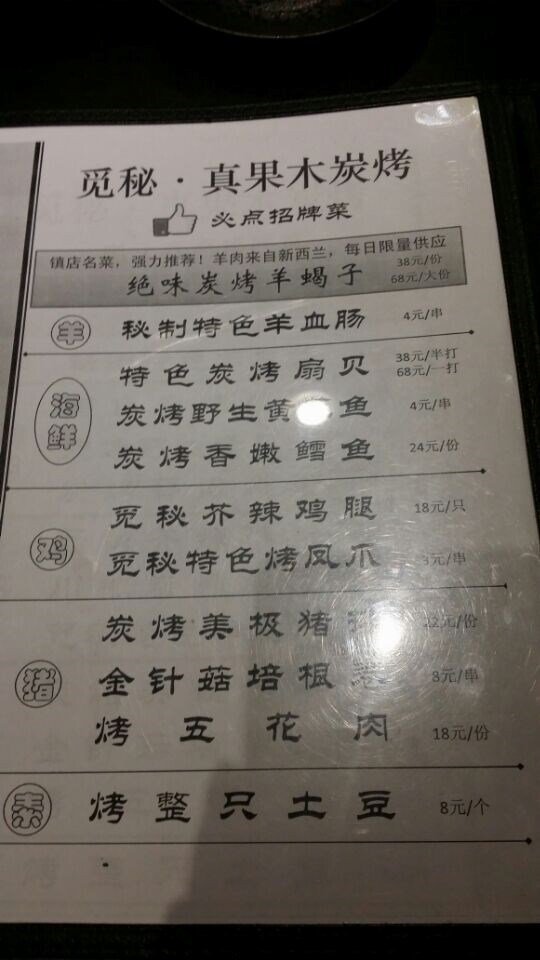 觅秘·真果木炭烤
必点招牌菜
镇店名菜，强力推荐！羊肉来自新西兰，每日限量供应
绝味炭烤羊蝎子 38元/份 68元/大份
羊 秘制特色羊血肠 4元/串
海鲜
特色炭烤扇贝 38元/半打 68元/一打
炭烤野生黄鱼 4元/串
炭烤香嫩鳕鱼 24元/份
鸡
觅秘芥辣鸡腿 18元/只
觅秘特色烤凤爪 3元/串
猪
炭烤美极猪 22元/份
金针菇培根 8元/串
烤五花肉 18元/份
素 烤整只土豆 8元/个